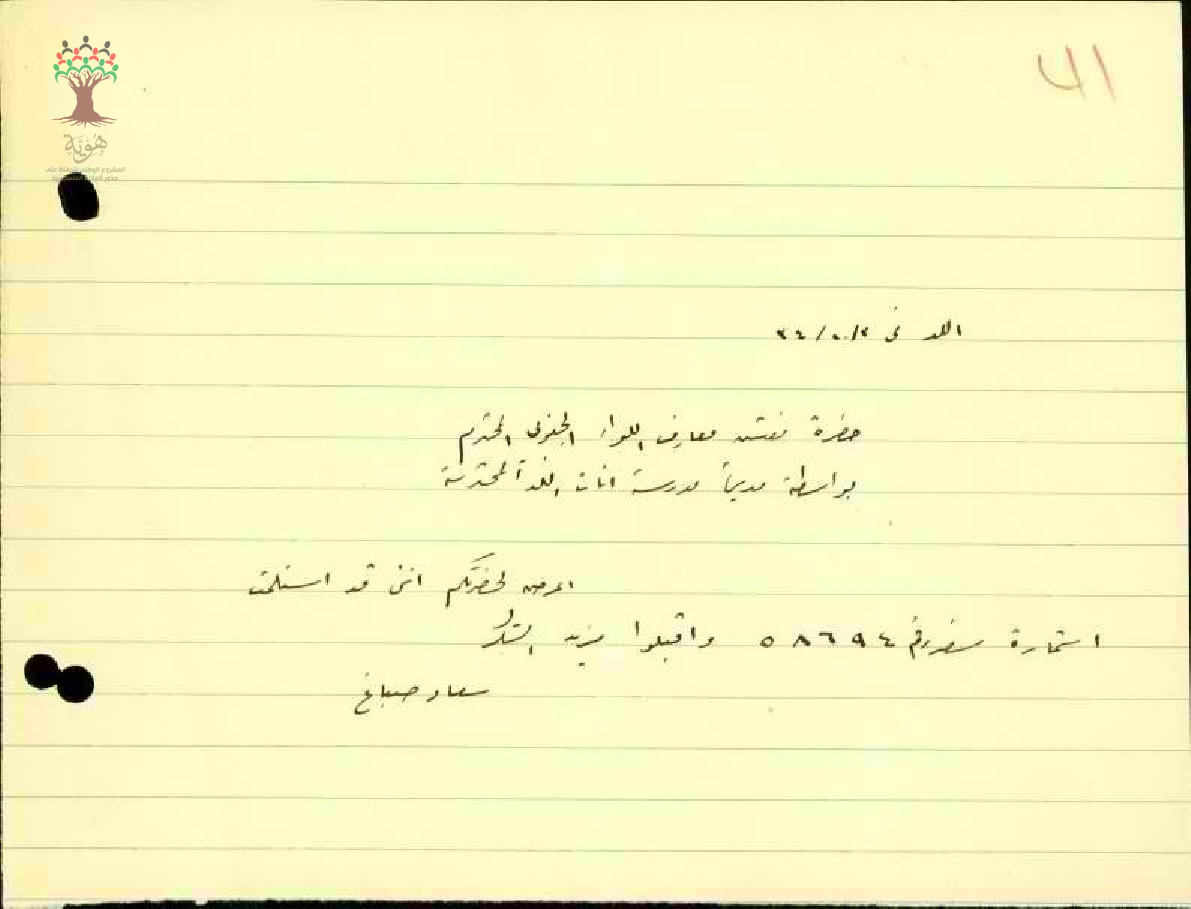 41
هُوِيَّة
المشروع الوطني للحفاظ على
اللد في ٢/ ١٠/ ٣٤
حضرة مفتش معارف اللواء الجنوبي المحترم
بواسطة مديرة مدرسة اناث اللد المحترمة
اعرض لحضرتكم انني قد استلمت
استمارة سفر رقم ٥٨٦٩٤ واقبلوا مزيد الشكر
سعاد صباغ